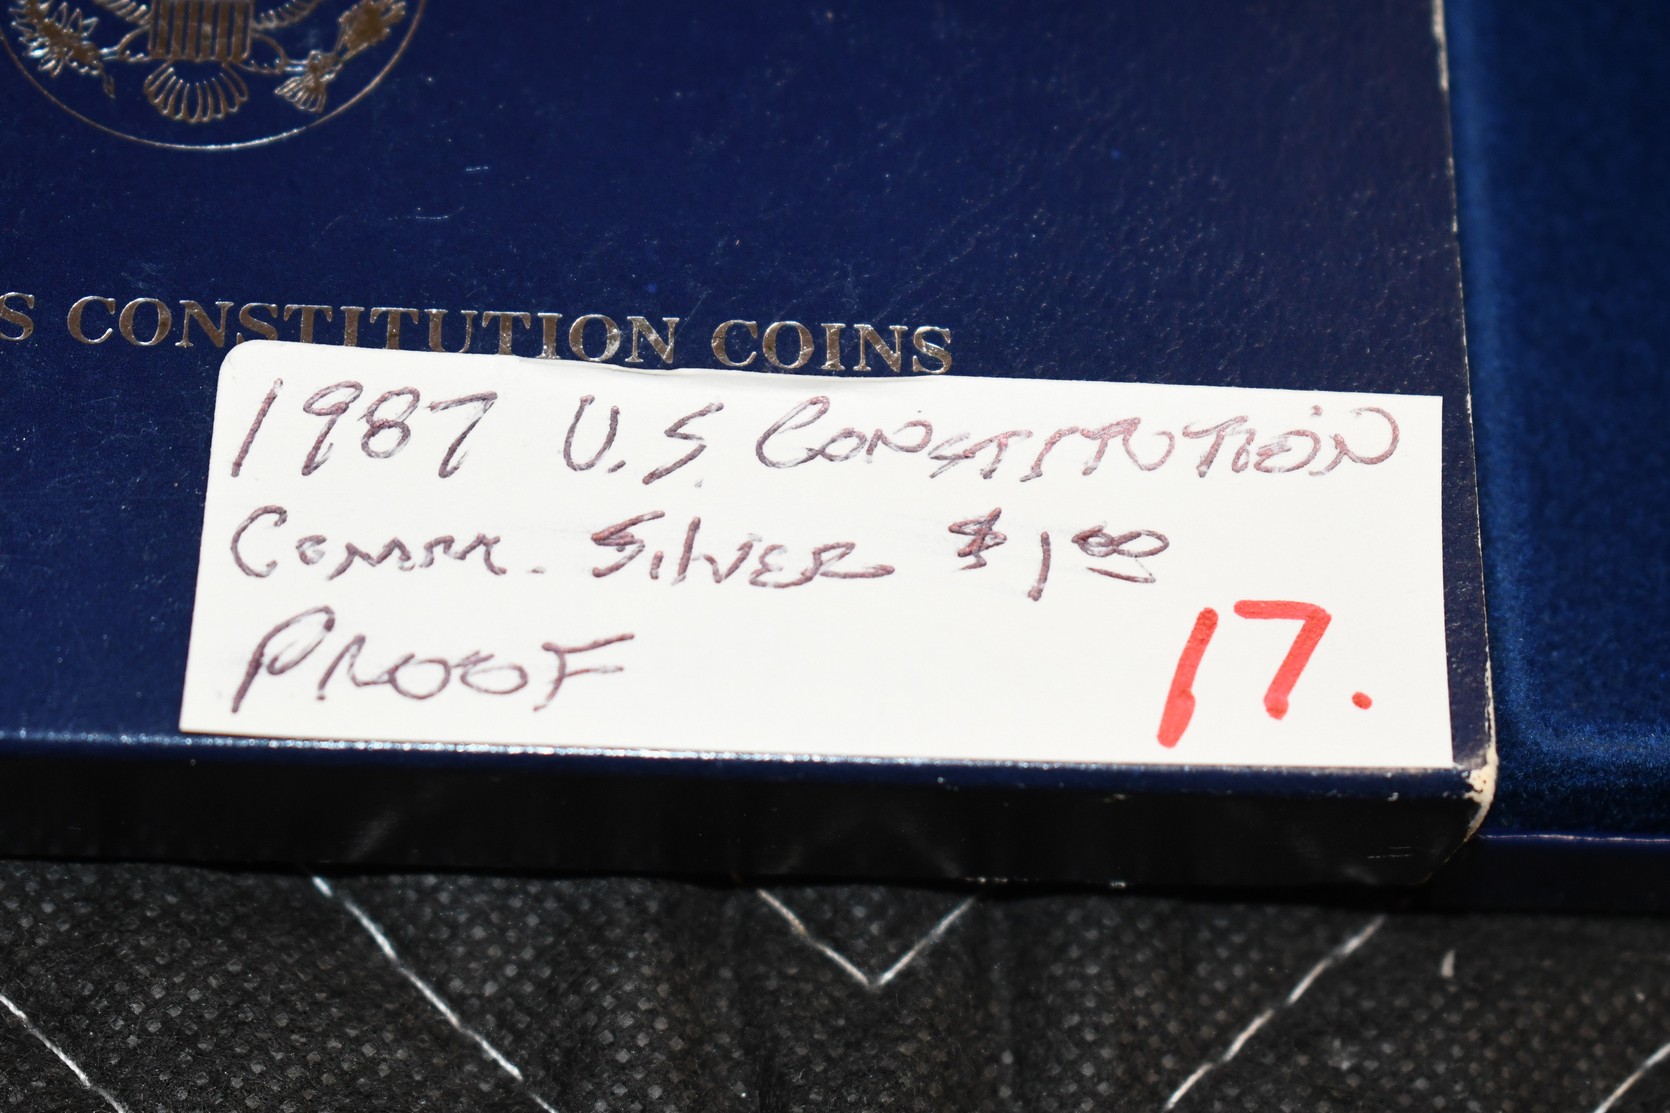 S CONSTITUTION COINS
1987 U.S. CONSTITUTION
COMM. SILVER $1.00
PROOF
17.